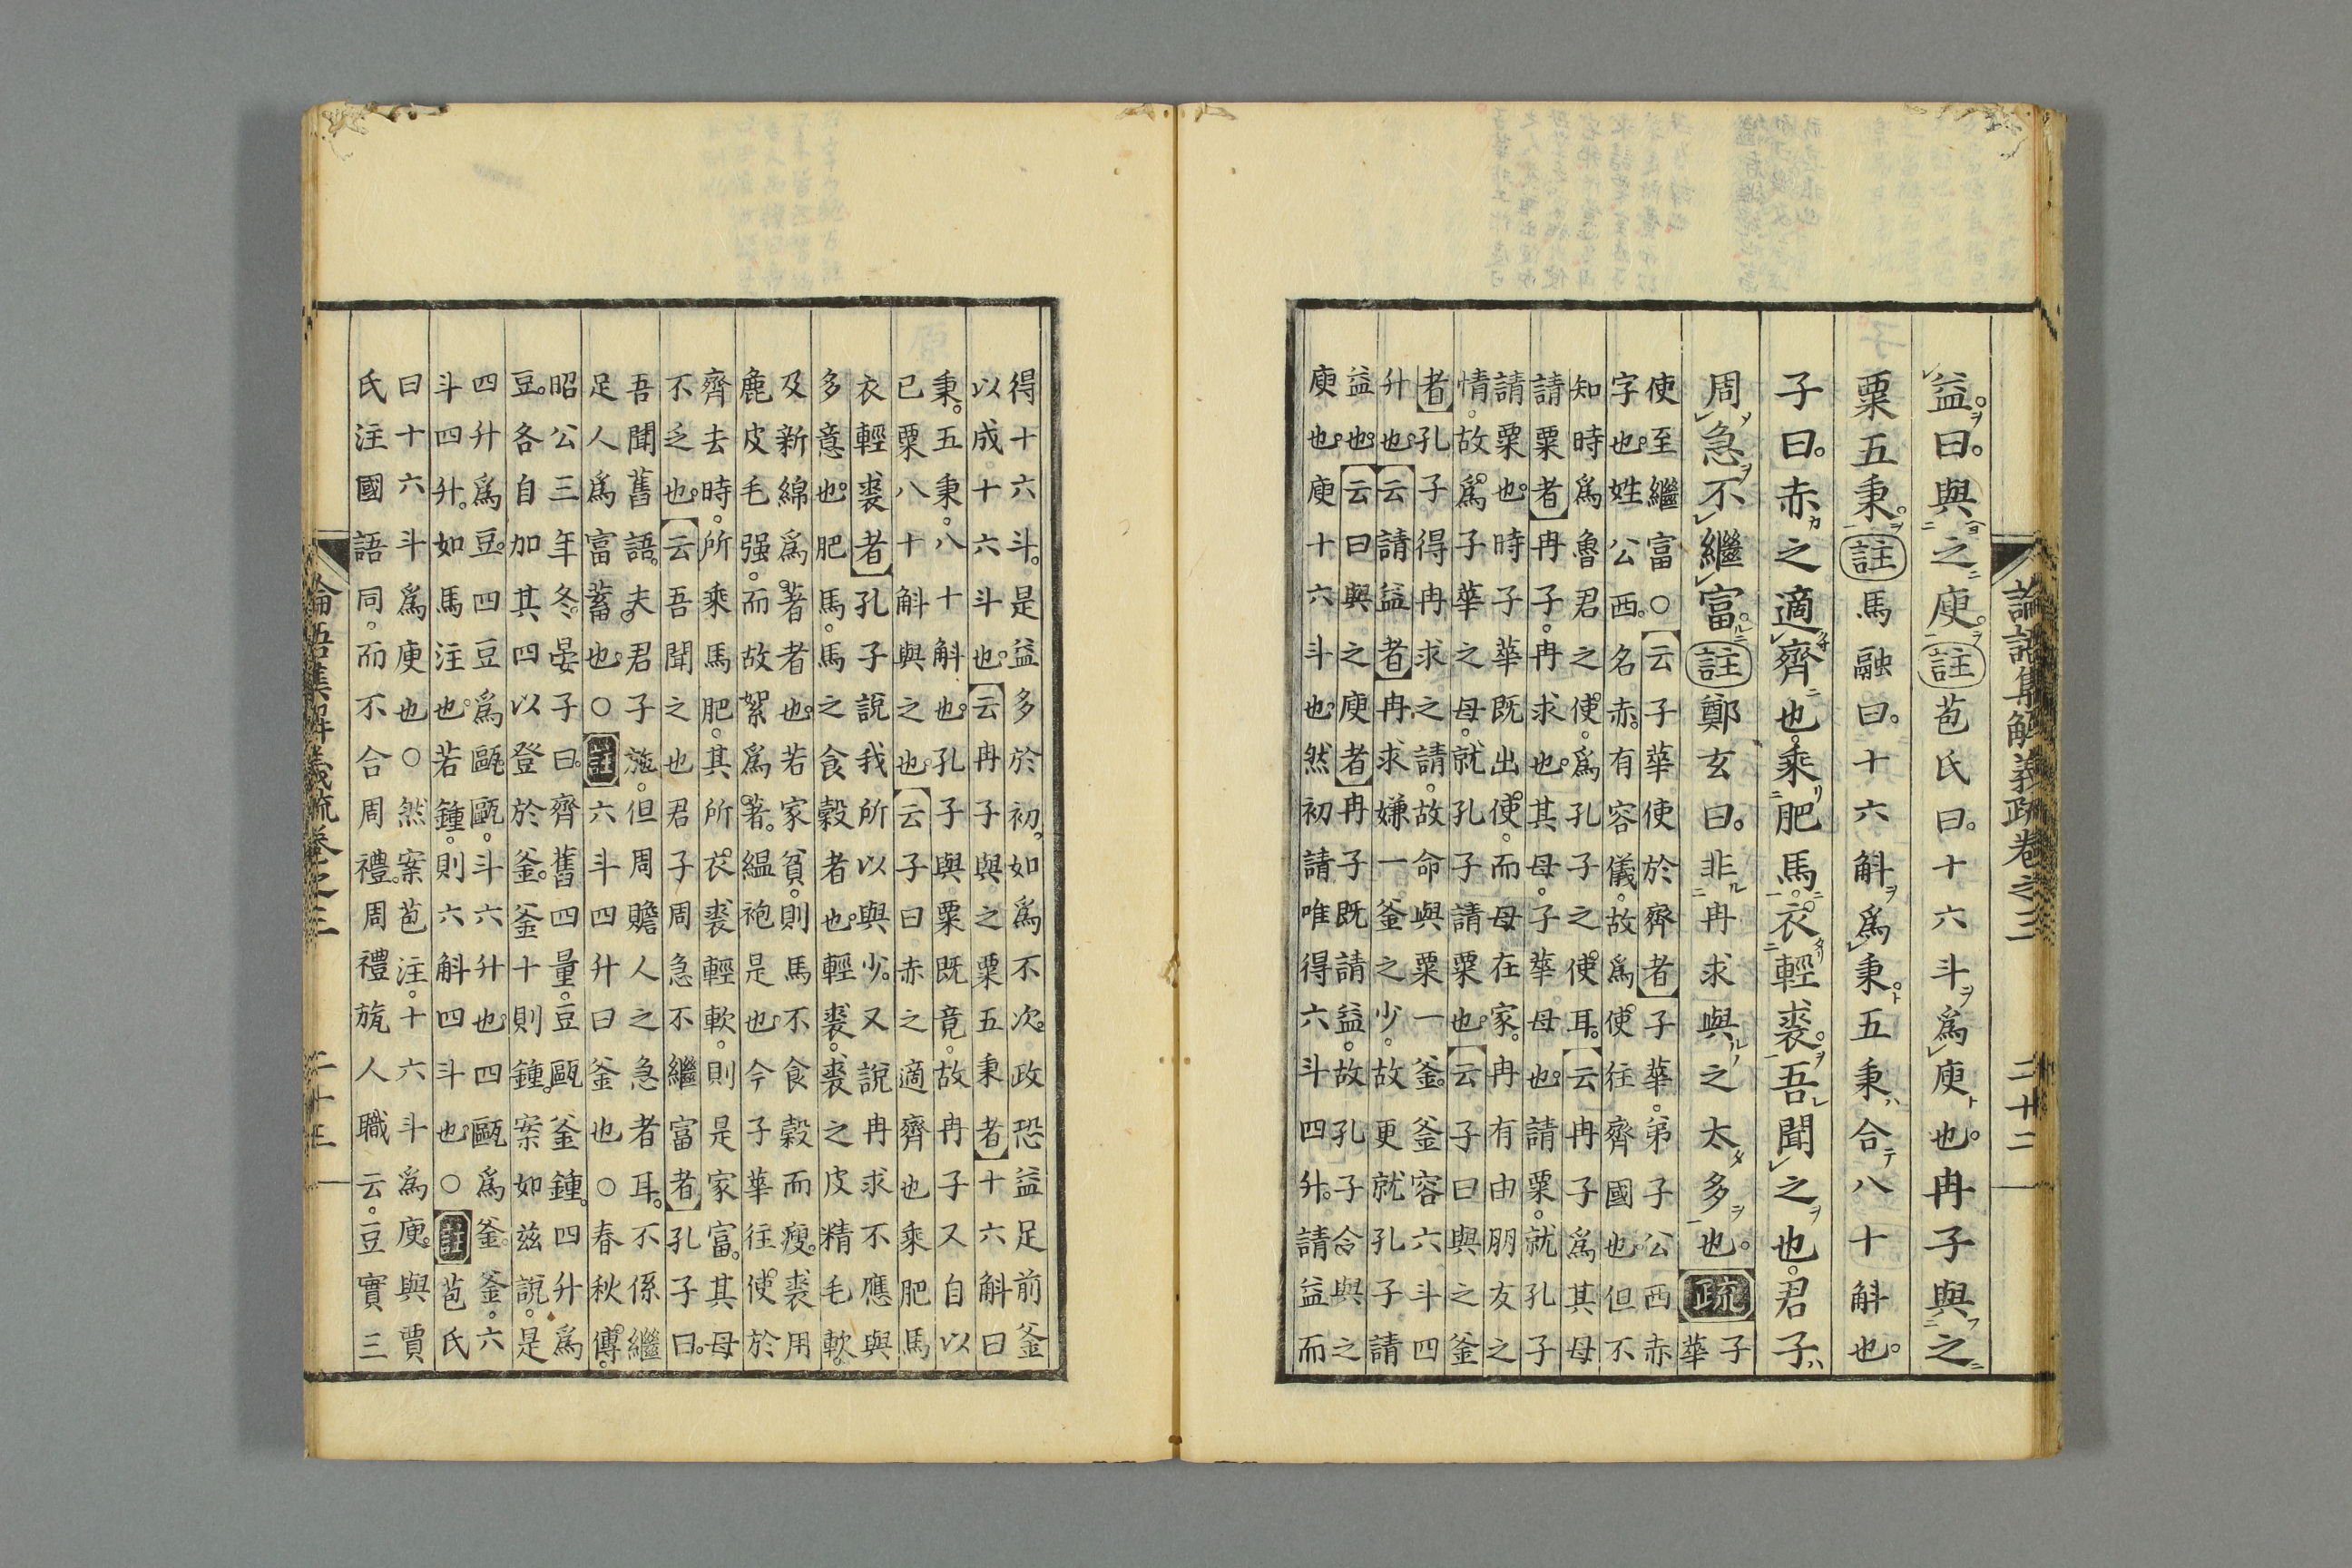 論語集解義疏卷之三　二十二
益。曰。與之庾。註苞氏曰。十六斗爲庾也。冉子與之
粟五秉。註馬融曰。十六斛爲秉五秉合八十斛也。
子曰。赤之適齊也。乘肥馬。衣輕裘。吾聞之也。君子
周急不繼富。註鄭玄曰。非冉求與之太多也。疏子華
使至繼富○云子華使於齊者子華。弟子公西赤
字也。姓公西。名赤。有容儀。故爲使。使往齊國也。但不
知時爲魯君之使。爲孔子之使耳。云冉子爲其母
請粟者冉子。冉求也。其母。子華母也。請粟。就孔子
請粟也。時子華既出使。而母在家。冉有由朋友之
情。故爲子華之母。就孔子請粟也。云子曰與之釜
者孔子得冉求之請。故命與粟一釜。釜容六斗四
升也。云請益者冉求嫌一釜之少。故更就孔子請
益也。云曰與之庾者冉子既請益。故孔子令與之
庾也。庾十六斗也。然初請唯得六斗四升。請益而
得十六斗。是益多於初。如爲不次。政恐益足前釜
以成。十六斗也。云冉子與之粟五秉者十六斛曰
秉。五秉。八十斛也。孔子與粟既竟。故冉子又自以
已粟八十斛與之也。云子曰赤之適齊也乘肥馬
衣輕裘者孔子說我所以與少。又說冉求不應與
多意也。肥馬。馬之食穀者也。輕裘。裘之皮精毛軟。
及新綿爲著者也。若家貧。則馬不食穀而瘦。裘用
鹿皮毛强。而故絮爲著。縕袍是也。今子華往使於
齊去時。所乘馬肥。其所衣裘輕軟。則是家富。其母
不乏也。云吾聞之也君子周急不繼富者孔子曰。
吾聞舊語。夫君子施。但周贍人之急者耳。不係繼
足人爲富蓄也。○註六斗四升曰釜也○春秋傳。
昭公三年冬。晏子曰。齊舊四量。豆甌釜鍾。四升爲
豆。各自加其四以登於釜。釜十則鍾。案如茲說。是
四升爲豆。四豆爲甌甌。斗六升也。四甌爲釜。釜。六
斗四升。如馬注也。若鍾。則六斛四斗也。○註苞氏
曰十六斗爲庾也○然案苞注。十六斗爲庾。與賈
氏注國語同。而不合周禮。周禮旊人職云。豆實三
論語集解義疏卷之三　二十三